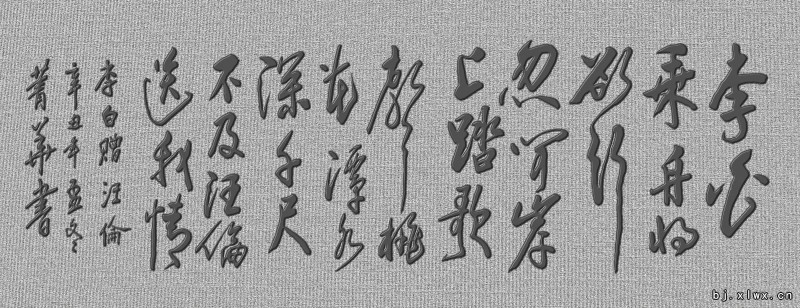 李白
乘舟将
欲行
忽闻岸
上踏歌
声桃
花潭水
深千尺
不及汪倫
送我情
李白赠汪倫
辛丑年孟冬
菁华書
bj.xlwx.cn